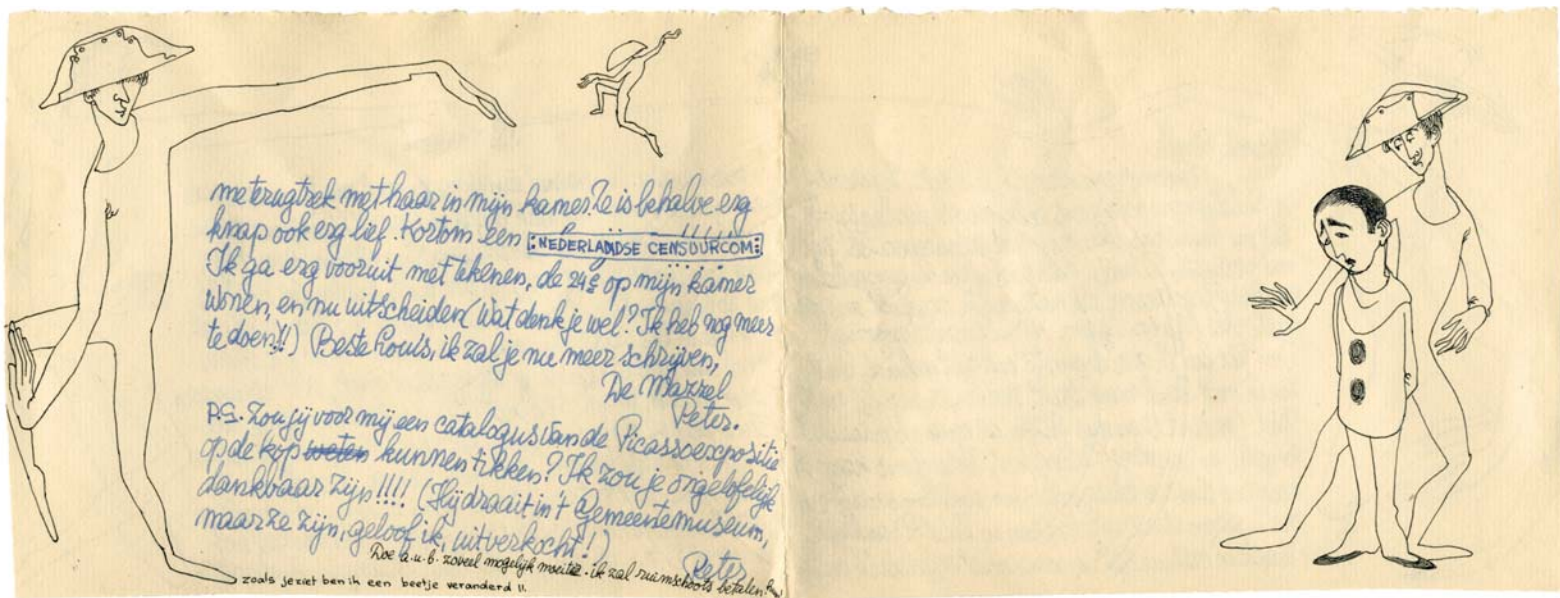 me terugtrek met haar in mijn kamer. Ze is behalve erg
knap ook erg lief. Kortom een !!!!!
NEDERLANDSE CENSUURCOM:
Ik ga erg vooruit met tekenen, de 24e op mijn kamer
wonen, en nu uitscheiden (Wat denk je wel? Ik heb nog meer
te doen!!) Beste Louls, ik zal je nu meer schrijven,
De Mazzel
Peter.
P.S. Zou jij voor mij een catalogus van de Picassoexpositie
op de kop weten kunnen tikken? Ik zou je ongelofelijk
dankbaar zijn!!!! (Hij draait in 't Gemeentemuseum,
maar ze zijn, geloof ik, uitverkocht!)
Peter
Doe a.u.b. zoveel mogelijk moeite. ik zal ruimschoots betalen.
zoals je ziet ben ik een beetje veranderd !!.